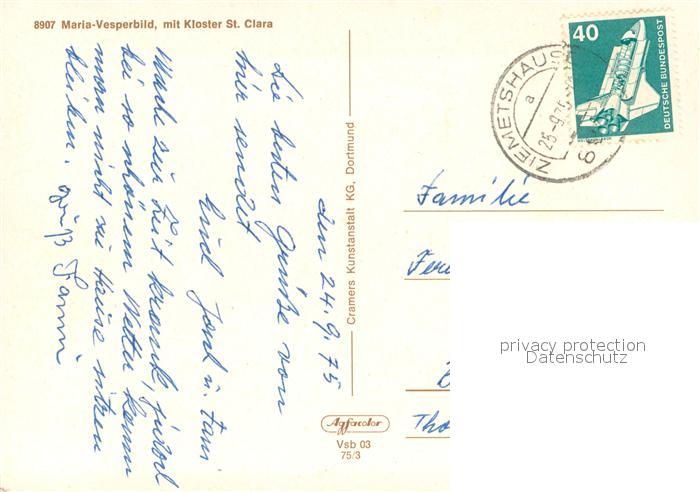 8907 Maria-Vesperbild, mit Kloster St. Clara
den 24.9.75
Die besten Grüße von
hier sendet
Josef u. Fani
Mache zur Zeit krank, jedoch
bei so schönem Wetter kann
man nicht zu Hause sitzen
bleiben. Gruß Fanni
Cramers Kunstanstalt KG, Dortmund
Agfacolor
Vsb 03
75/3
40
DEUTSCHE BUNDESPOST
ZIEMETSHAUSEN
a
25.-9.75
Familie
privacy protection
Datenschutz
Tho